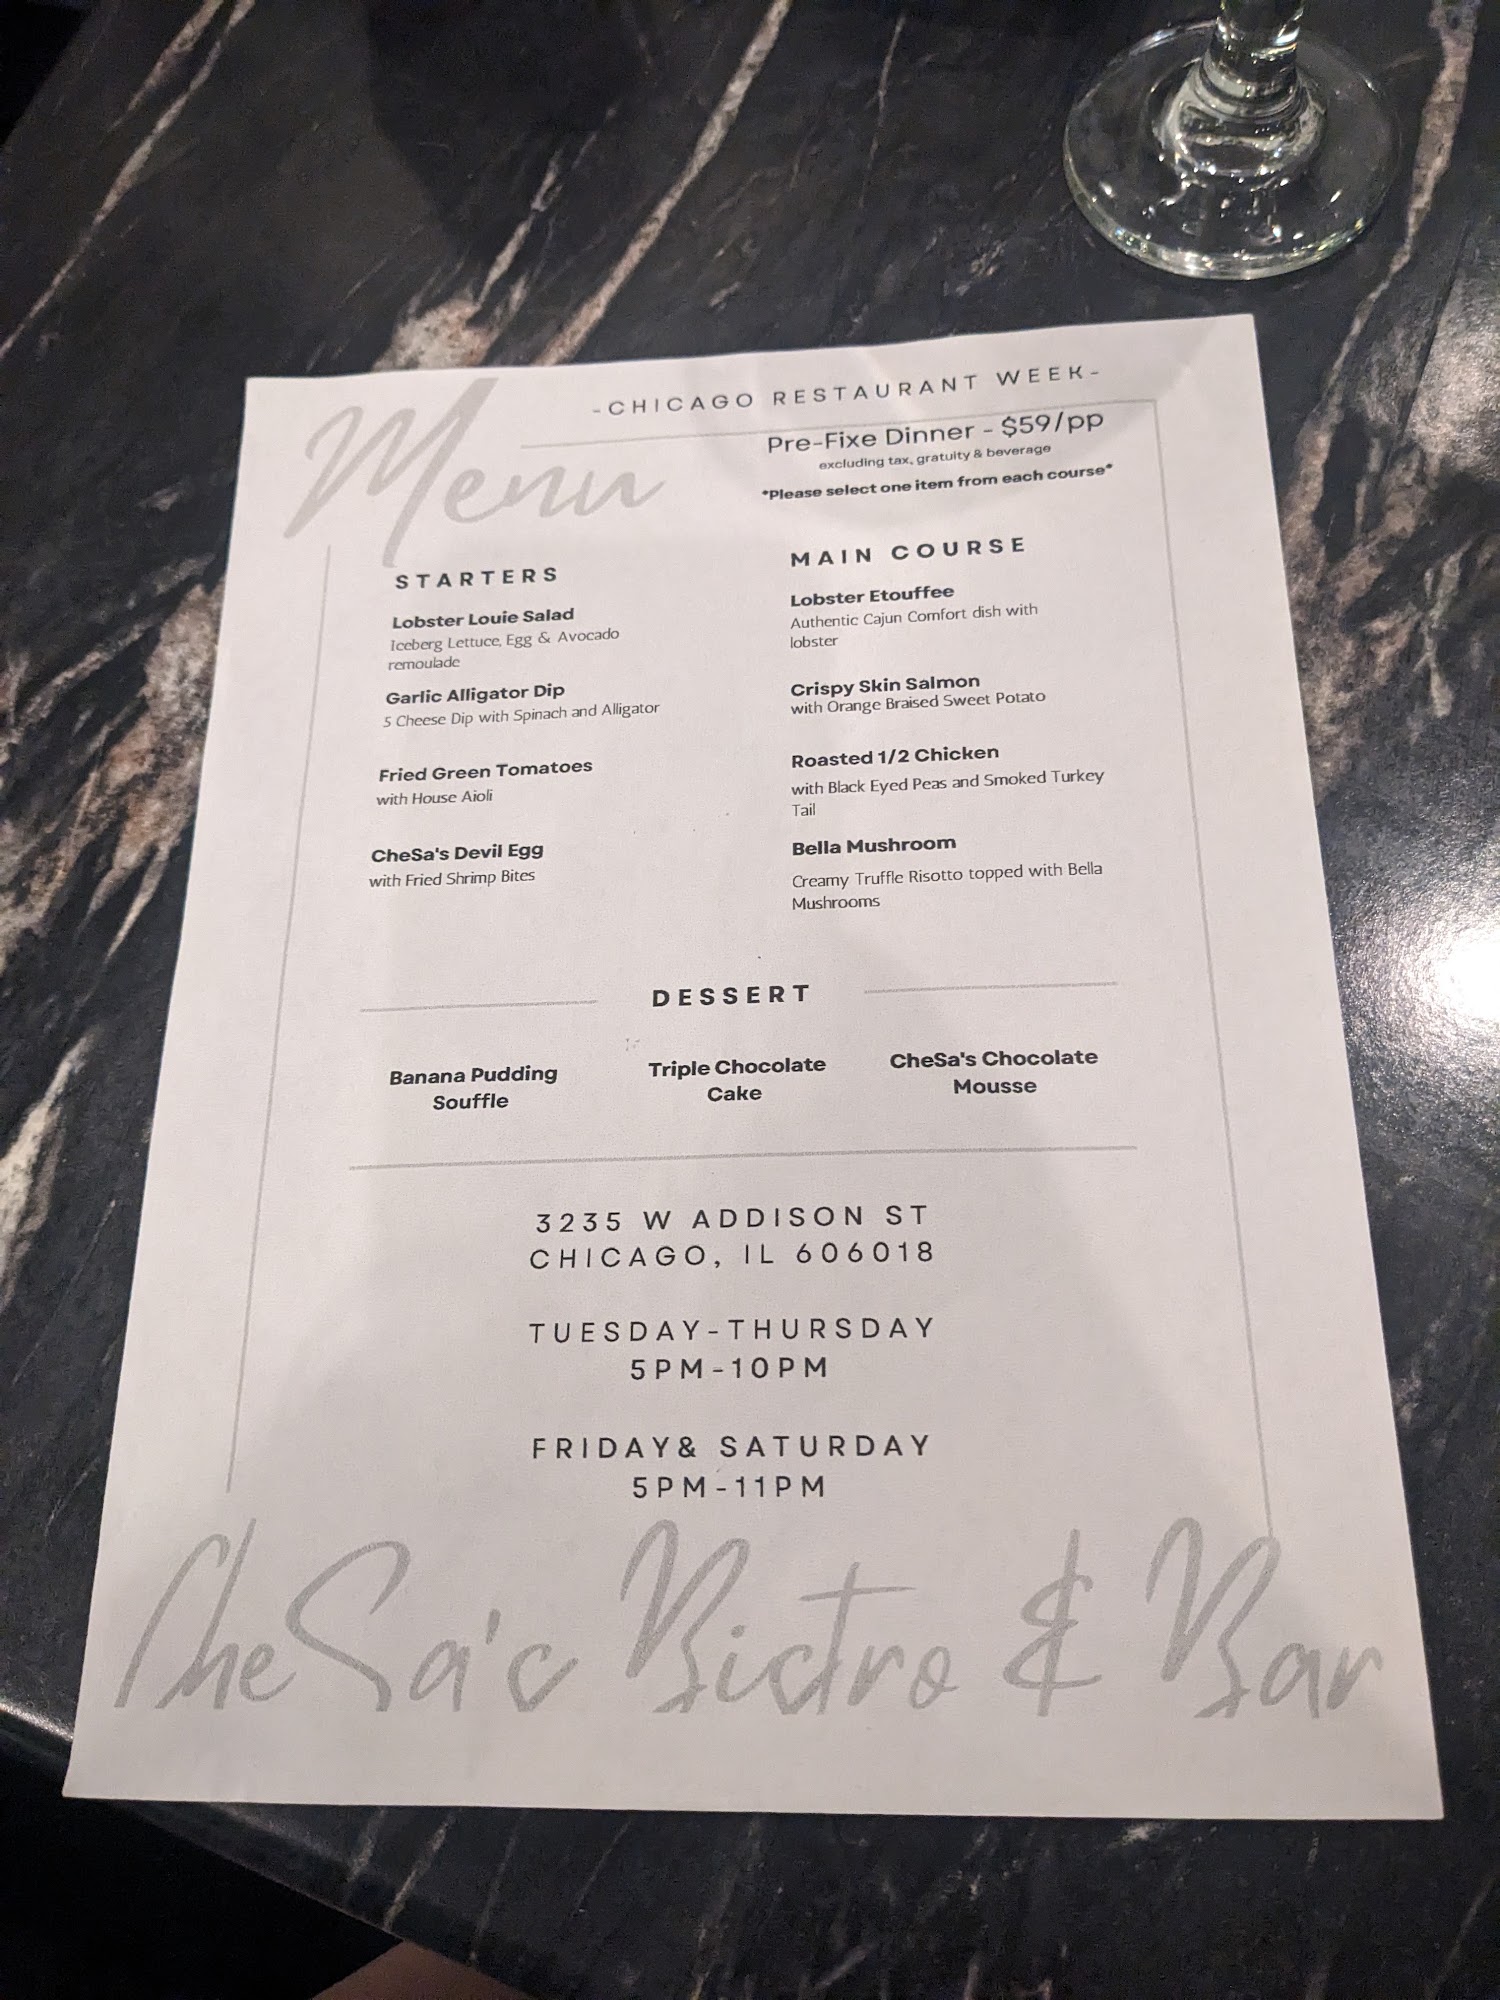 -CHICAGO RESTAURANT WEEK-
Menu
Pre-Fixe Dinner - $59/pp
excluding tax, gratuity & beverage
*Please select one item from each course*
STARTERS
Lobster Louie Salad
Iceberg Lettuce, Egg & Avocado
remoulade
Garlic Alligator Dip
5 Cheese Dip with Spinach and Alligator
Fried Green Tomatoes
with House Aioli
CheSa's Devil Egg
with Fried Shrimp Bites
MAIN COURSE
Lobster Etouffee
Authentic Cajun Comfort dish with
lobster
Crispy Skin Salmon
with Orange Braised Sweet Potato
Roasted 1/2 Chicken
with Black Eyed Peas and Smoked Turkey
Tail
Bella Mushroom
Creamy Truffle Risotto topped with Bella
Mushrooms
DESSERT
Banana Pudding
Souffle
Triple Chocolate
Cake
CheSa's Chocolate
Mousse
3235 W ADDISON ST
CHICAGO, IL 606018
TUESDAY-THURSDAY
5PM-10PM
FRIDAY& SATURDAY
5PM-11PM
CheSa's Bistro & Bar